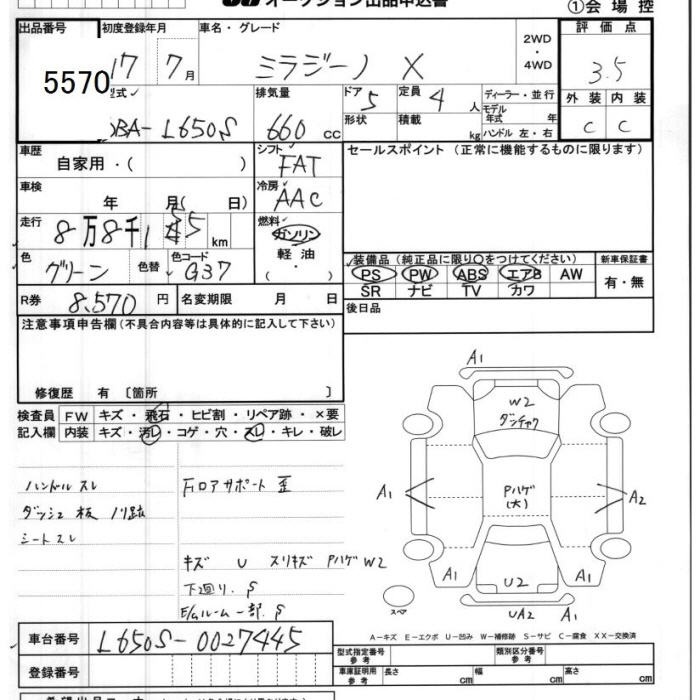 オークション出品申込書
①会場控
出品番号 初度登録年月 車名・グレード 2WD・4WD 評価点
5570 17 7月 ミラジーノ X 3.5
型式 排気量 ドア 5 定員 4人 ディーラー・並行 外装 内装
モデル年式 年
DBA-L650S 660cc 形状 積載 kg ハンドル 左・右 C C
車歴 シフト セールスポイント (正常に機能するものに限ります)
自家用・( ) FAT
車検 冷房
年 月( 日) AAC
走行 燃料
8万8千1 55km ガソリン
軽油
・( )
色 グリーン 色替 色コード G37
装備品(純正品に限り○をつけてください) 新車保証書
PS PW ABS エアB AW 有・無
SR ナビ TV カワ
R券 8,570円 名変期限 月 日 後日品
注意事項申告欄(不具合内容等は具体的に記入して下さい)
修復歴 有 〔箇所 〕
検査員 FW キズ・飛石・ヒビ割・リペア跡・×要
記入欄 内装 キズ・汚レ・コゲ・穴・スレ・キレ・破レ
ハンドル スレ
ダッシュ 板 ノリ跡
シートスレ
Fロアサポート 歪
キズ U スリキズ Pハゲ W2
下廻り、S
E/gルーム一部、S
A1
W2
ダンチャク
A1
Pハゲ
(大)
A2
A1
A1
U2
スペア
UA2
A1
A-キズ E-エクボ U-凹み W-補修跡 S-サビ C-腐食 XX-交換済
車台番号 L650S-0027445
型式指定番号 参考 類別区分番号 参考
登録番号
車庫証明用 参考 長さ cm 幅 cm 高さ cm